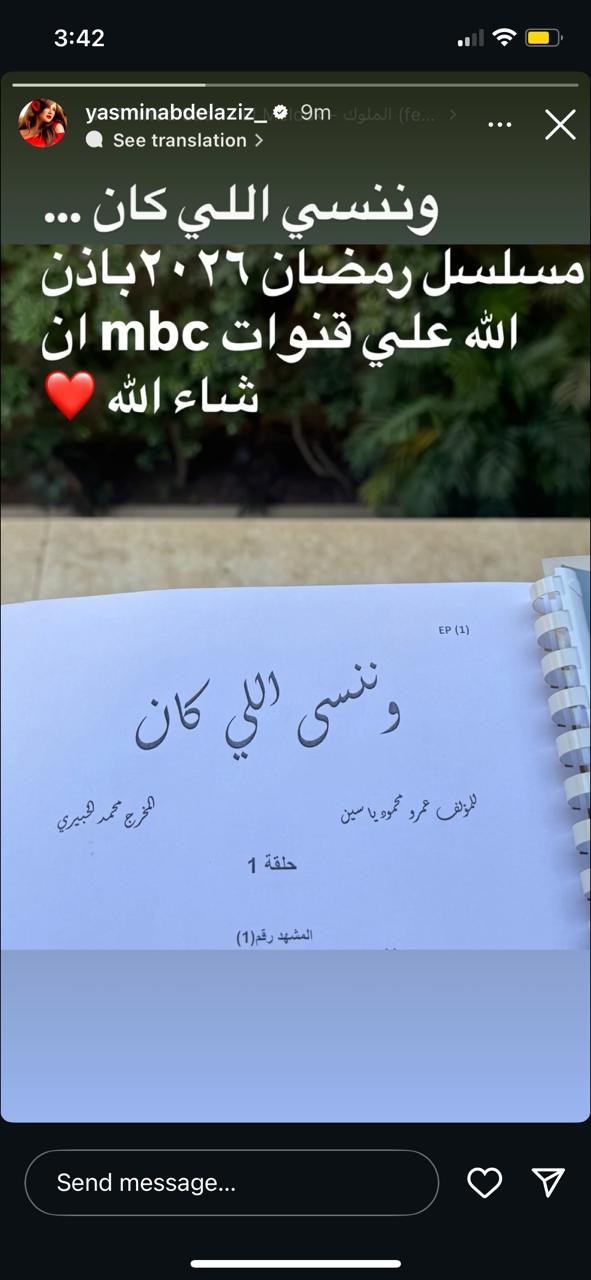 3:42
yasminabdelaziz_ 9m
الملوك (fe... >
See translation >
وننسي اللي كان ...
مسلسل رمضان ٢٠٢٦باذن
الله علي قنوات mbc ان
شاء الله ❤️
EP (1)
وننسى اللي كان
للمؤلف عمرو محمود ياسين
المخرج محمد الخبيري
حلقة 1
المشهد رقم(1)
Send message...